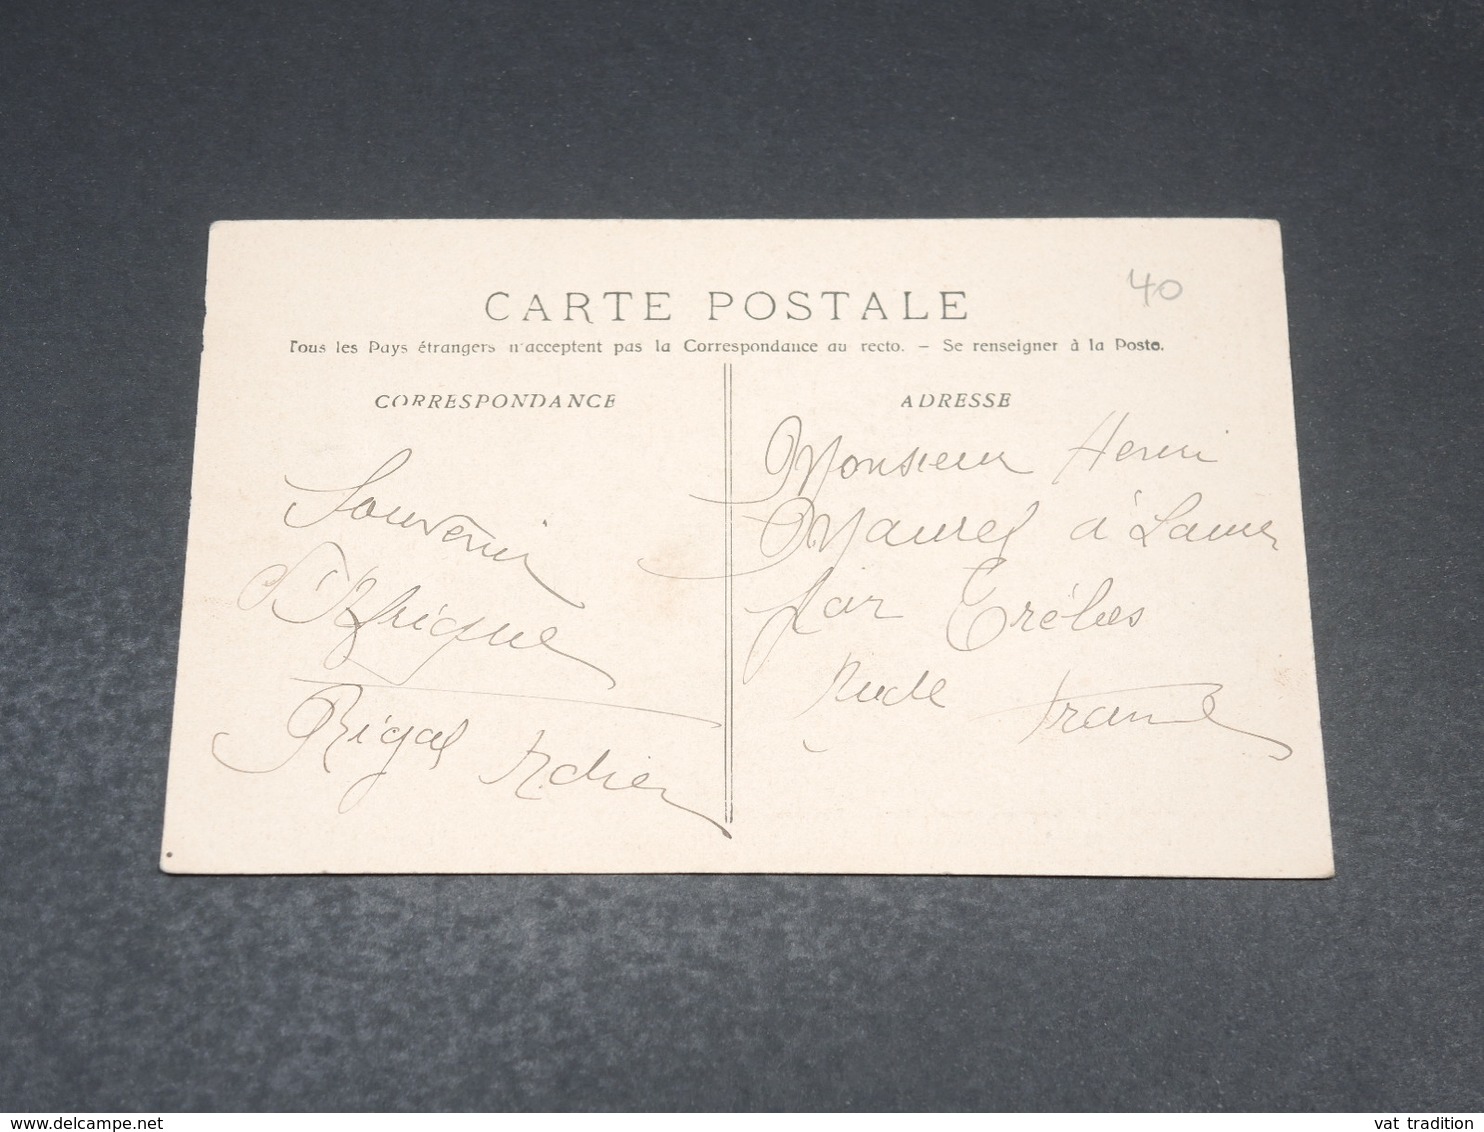 40
CARTE POSTALE
Tous les Pays étrangers n'acceptent pas la Correspondance au recto. - Se renseigner à la Poste.
CORRESPONDANCE
Souvenir
d'Afrique
Rigal
ADRESSE
Monsieur Henri
Maurel à
par Trèbes
Aude France
www.delcampe.net
vat tradition